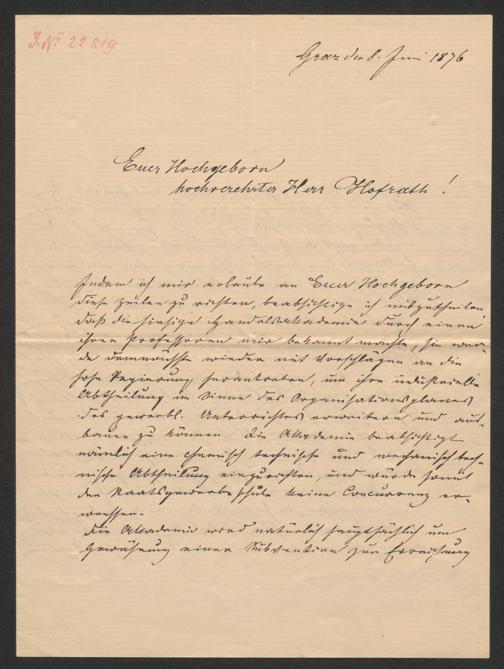 J. N: 29.519
Graz den 8. Juni 1876
Euer Hochgeborn
hochverehrter Herr Hofrath!
Indem ich mir erlaube an Euer Hochgeborn
diese Zeilen zu richten, beabsichtige ich mitzutheilen,
daß die hiesige Handelsakademie durch einen
ihrer Professoren mir bekannt machte, sie wer-
de demnächst wieder mit Vorschlägen an die
hohe Regierung herantreten, um ihre industrielle
Abtheilung im Sinne des Organisationsplanes
des gewerbl. Unterrichtes erweitern und aus-
bauen zu können. Die Akademie beabsichtigt
nämlich eine chemisch technische und mechanisch tech-
nische Abtheilung einzurichten, und würde somit
der Staatsgewerbeschule keine Concurrenz er-
wachsen.
Die Akademie wird natürlich hauptsächlich um
Gewährung einer Subvention zur Erreichung